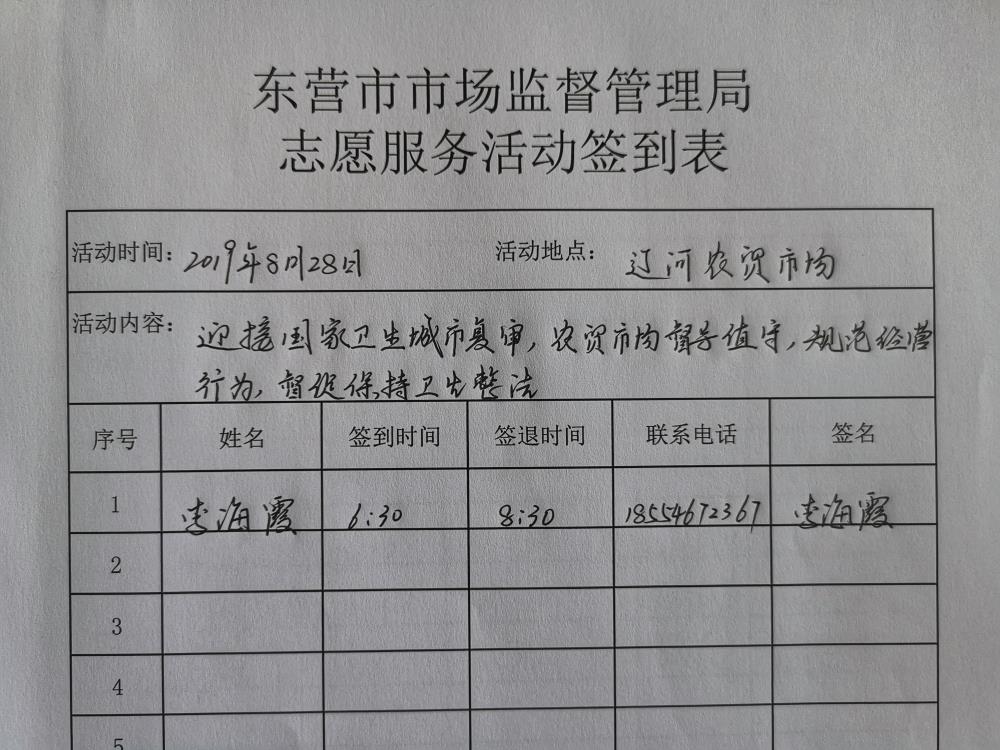 东营市市场监督管理局
志愿服务活动签到表
活动时间：2019年8月28日 活动地点：辽河农贸市场
活动内容：迎接国家卫生城市复审，农贸市场督导值守，规范经营
行为，督促保持卫生整洁
序号 姓名 签到时间 签退时间 联系电话 签名
1 李海霞 6:30 8:30 18554672367 李海霞
2
3
4
5